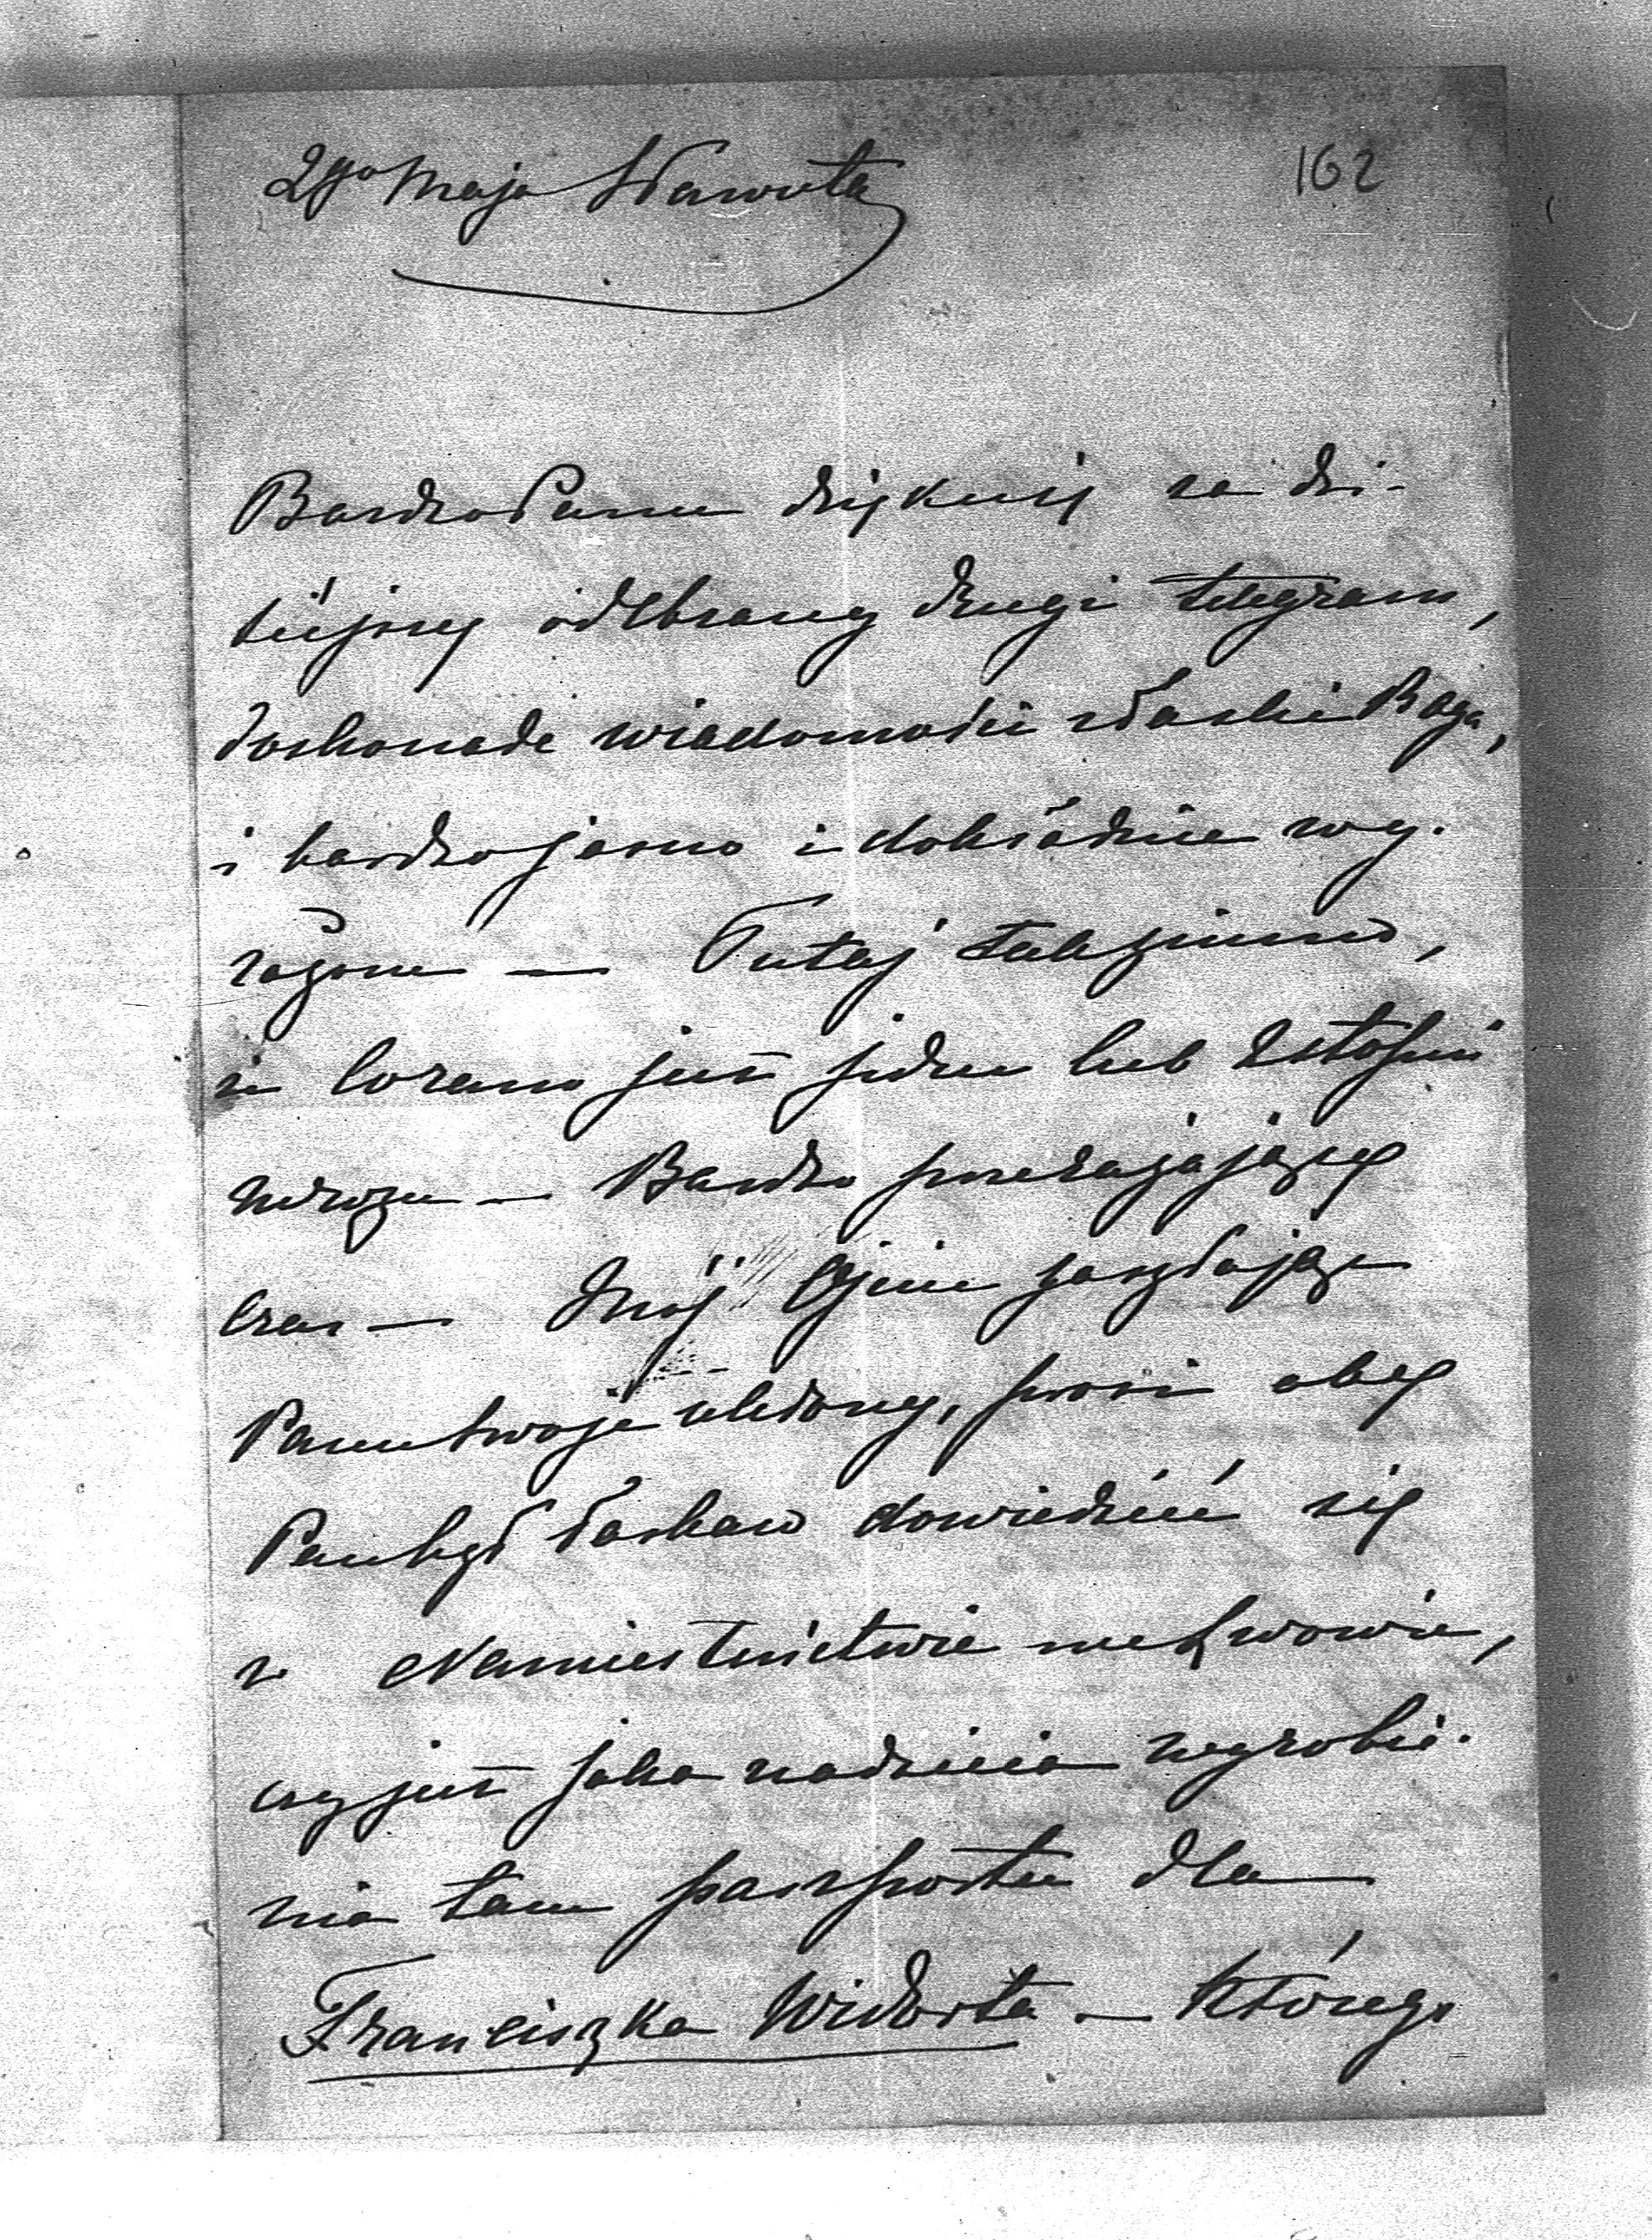 2go Maja Sławuta
162
Bardzo Panu dziękuję za dzi-
siejszy odebrany drugi telegram,
doskonałe wiadomości z łaski Boga,
i bardzo jasno i dokładnie wy-
rażone — Tutaj tak zimno,
że wczoraj już jeden lub 2 stopnie
mrozu — Bardzo przerażający
czas — Mój Ojciec zasyłając
Panu swoje ukłony, prosi aby
Pan był łaskaw dowiedzieć się
w Namiestnictwie we Lwowie,
czy jest jaka nadzieja wyrobie-
nia tam paszportu dla
Franciszka Wiktorta — którego